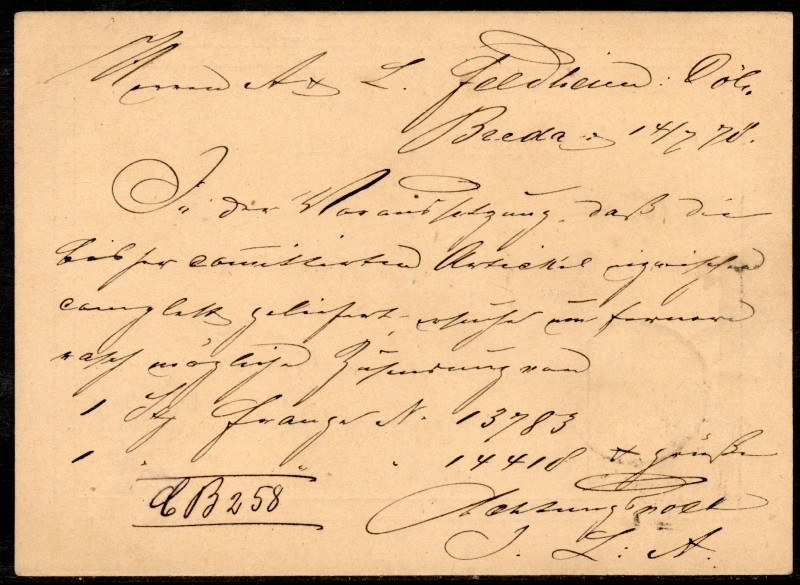 Herren A & L. Feldheim. Cöln
Breda, 14/7 78.
In der Voraussetzung, daß die
bisher comittirten Artickel inzwischen
complett geliefert, ersuche um fernere
rasch mögliche Zusendung von
1 Stz Frange N. 13783
1 " " " 14418 & grüße
CB 258 Achtungsvoll
J. L: A.